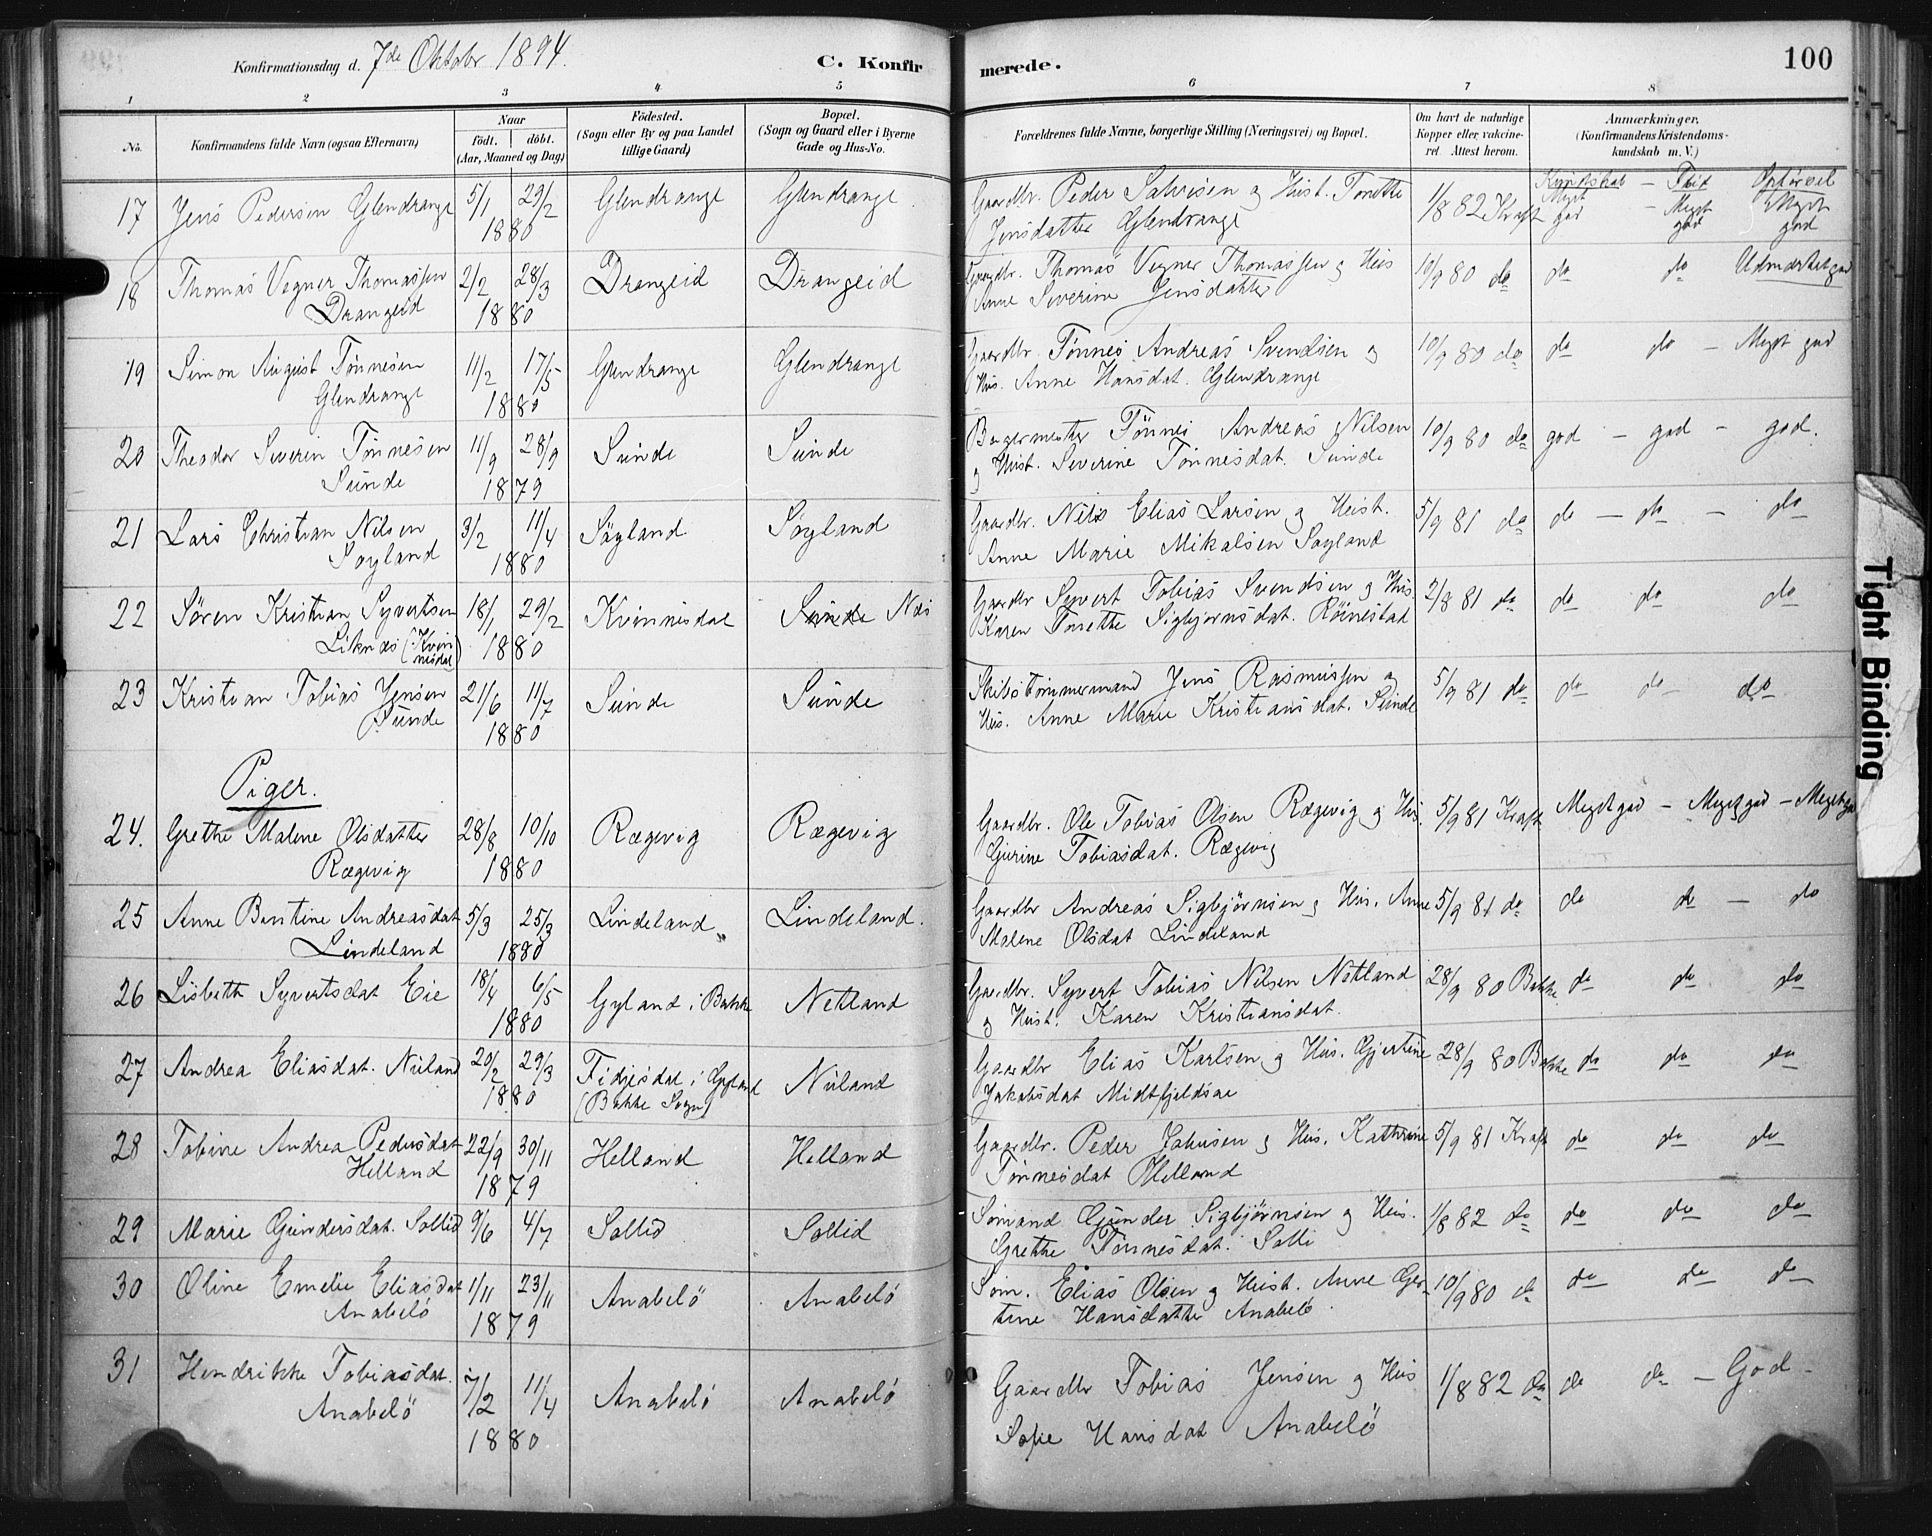 Konfirmationsdag d. 7de Oktobr 1894. C. Konfir merede. 100
1 2 3 4 5 6 7 8
No. Konfirmandens fulde Navn (ogsaa Efternavn)
Naar
födt. döbt.
(Aar, Maaned og Dag)
Födested.
(Sogn eller By og paa Landet
tillige Gaard)
Bopæl.
(Sogn og Gaard eller i Byerne
Gade og Hus-No.
Forældrenes fulde Navne, borgerlige Stilling (Næringsvei) og Bopæl.
Om havt de naturlige
Kopper eller vakcine-
ret. Attest herom.
Anmærkninger.
(Konfirmandens Kristendoms-
kundskab m. V.)
Kundskab — Flid Opførsel
17 Jens Pedersen Glendrange 5/1 29/2 Glendrange Glendrange Gaardbr. Peder Salvesen og Hust. Tonette 1/8 82 Kraft Meget god — Meget god Meget god
1880 Jensdatter Glendrange
18 Thomas Vegner Thomassen 2/2 28/3 Drangeid Drangeid Gaardbr. Thomas Vegner Thomassen og Hus 10/9 80 do do do Udmærketgod
Drangeid 1880 Anne Severine Jensdatter
19 Simon August Tønnesen 11/2 17/5 Glendrange Glendrange Gaardbr. Tønnes Andreas Svendsen og 10/9 80 do do do — Meget god
Glendrange 1880 Hus. Anne Hansdat. Glendrange
20 Theodor Severin Tønnesen 11/9 28/9 Sunde Sunde Tønnes Andreas Nilsen 10/9 80 do god — god — god.
Sunde 1879 og Hust. Severine Tønnesdat. Sunde
21 Lars Christian Nilsen 3/2 11/4 Søyland Søyland Gaardbr. Nils Elias Larsen og Hust. 5/9 81 do do — do — do
Søyland 1880 Anne Marie Mikalsen Søyland
22 Sören Kristian Syvertsen 18/1 29/2 Kvinnesdal Sunde Næs Gaardbr Syvert Tobias Svendsen og Hus 2/8 81 do do do do
Liknæs (Kvinnesdal) 1880 Karen Tonette Sigbjørnsdat. Röinestad
23 Kristian Tobias Jensen 21/6 11/7 Sunde Sunde Skibstömmermand Jens Rasmussen og 5/9 81 do do do do
Sunde 1880 Hus. Anne Marie Kristiansdat. Sunde
Piger.
24. Grethe Malene Olsdatter 28/8 10/10 Rægevig Rægevig Gaardbr. Ole Tobias Olsen Rægevig og Hus. 5/9 81 Kraft Meget god — Meget god — Meget god
Rægevig 1880 Gurine Tobiasdat. Rægevig
25 Anne Bentine Andreasdat 5/3 25/3 Lindeland Lindeland. Gaardbr Andreas Sigbjørnsen og Hus. Anne 5/9 81 do do do — do
Lindeland 1880 Malene Olsdat Lindeland
26 Lisbeth Syvertsdat Eie 18/4 6/5 Gyland i Bakke Netland Gaardbr. Syvert Tobias Nilsen Netland 28/9 80 Bakke do do do
1880 og Hust. Karen Kristiansdat.
27 Andrea Eliasdat. Nuland 20/2 29/3 Fidjesdal i Gyland Nuland Gaardbr Elias Karlsen og Hus. Gjertine 28/9 80 Bakke do do do
1880 (Bakke Sogn) Jakobsdat Midtfjeldsaa
28 Tobine Andrea Pedersdat 22/9 30/11 Helland Helland Gaardbr. Peder Jakusen og Hus. Kathrine 5/9 81 Kraft do do do
Helland 1879 Tönnesdat Helland
29 Marie Gundersdat. Sollid 9/6 4/7 Sollid Sollid Sömand Gunder Sigbjörnsen og Hus. 1/8 82 do do do do
Grethe Tönnesdat. Solli
30 Oline Emelie Eliasdat 1/11 23/11 Anabelö Anabelö Söm. Elias Olsen og Hust. Anne Ger- 10/9 80 do do do do
Anabelö 1879 tine Hansdatter Anabelö
31 Hendrikke Tobiasdat. 7/2 11/4 Anabelö Anabelö Gaardbr Tobias Jensen og Hus 1/8 82 do do do — God
Anabelö 1880 Sofie Hansdat Anabelö
Tight Binding